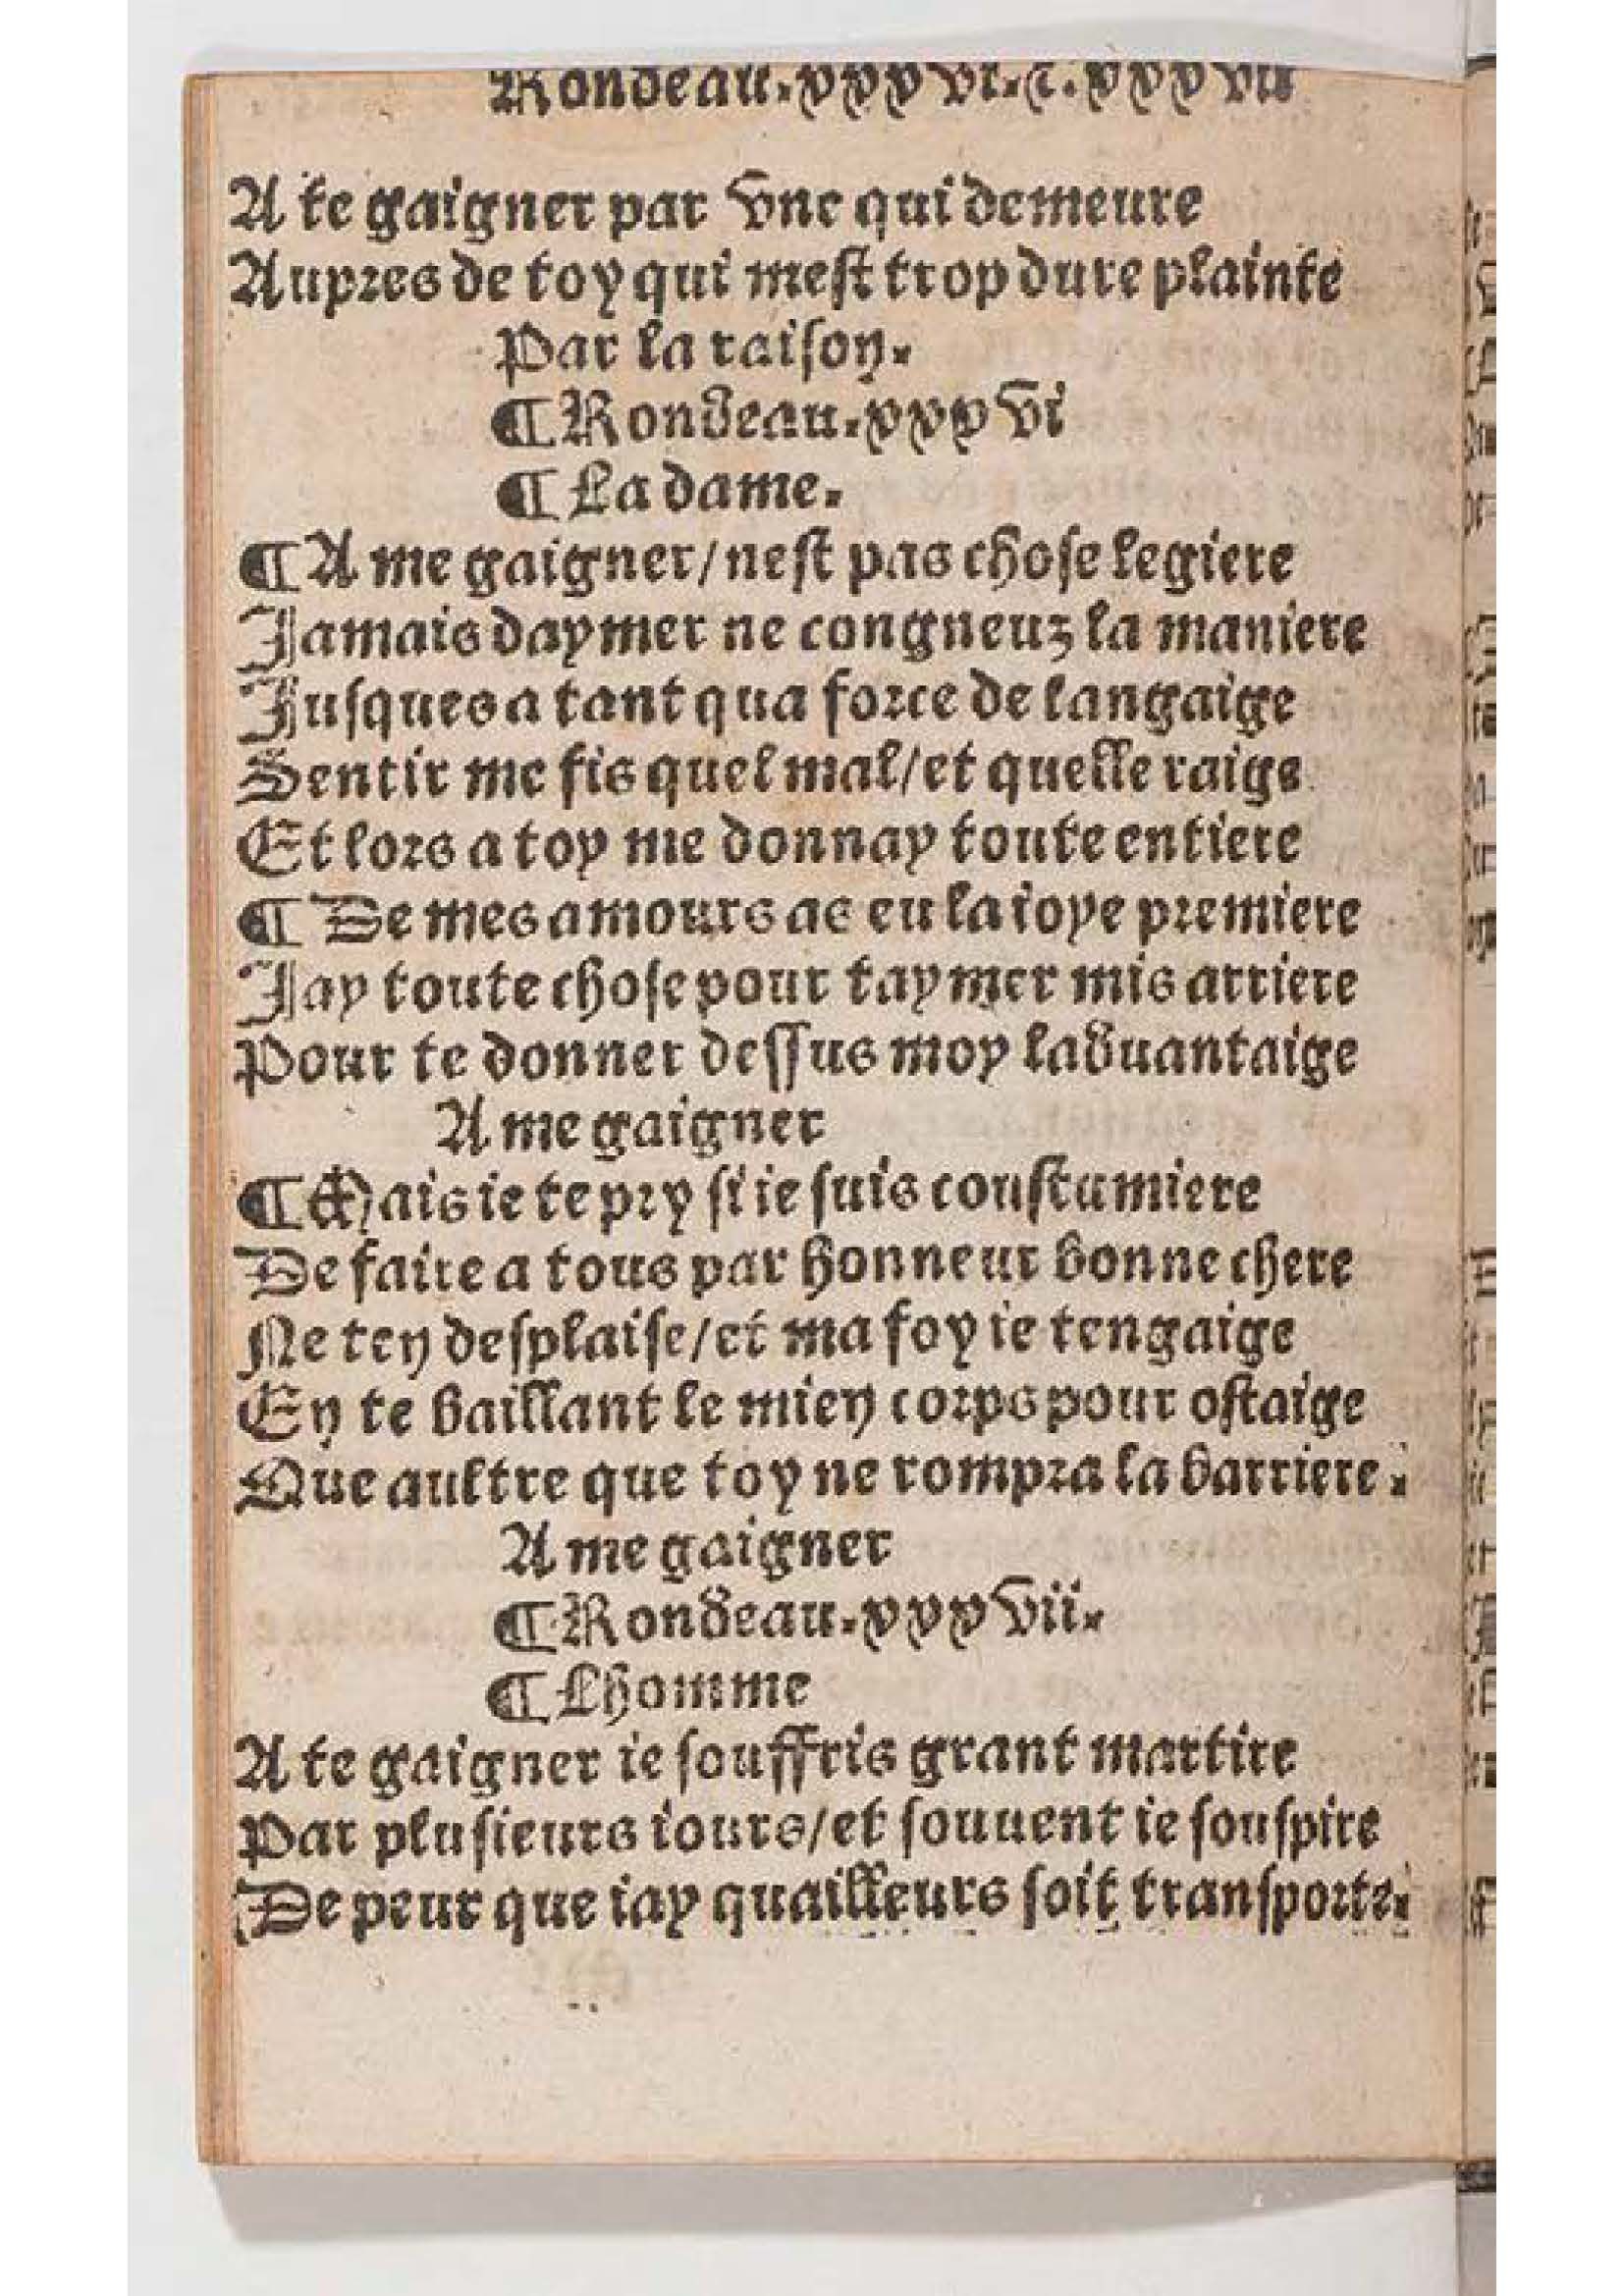 Rondeau.xxxvi.⁊.xxxvii
A te gaigner par vne qui demeure
Aupres de toy qui mest trop dure plainte
Par la raison.
¶ Rondeau.xxxvi
¶ La dame.
¶ A me gaigner/nest pas chose legiere
Jamais daymer ne congneuz la maniere
Jusques a tant qua force de langaige
Sentir me fis quel mal/et quelle raige
Et lors a toy me donnay toute entiere
¶ De mes amours as eu la ioye premiere
Jay toute chose pour taymer mis arriere
Pour te donner dessus moy laduantaige
A me gaigner
¶ Mais ie te pry si ie suis coustumiere
De faire a tous par honneur bonne chere
Ne ten desplaise/et ma foy ie tengaige
En te baillant le mien corps pour ostaige
Que aultre que toy ne rompra la barriere.
A me gaigner
¶ Rondeau.xxxvii.
¶ Lhomme
A te gaigner ie souffris grant martire
Par plusieurs iours/et souuent ie souspire
De peur que iay quailleurs soit transporte.